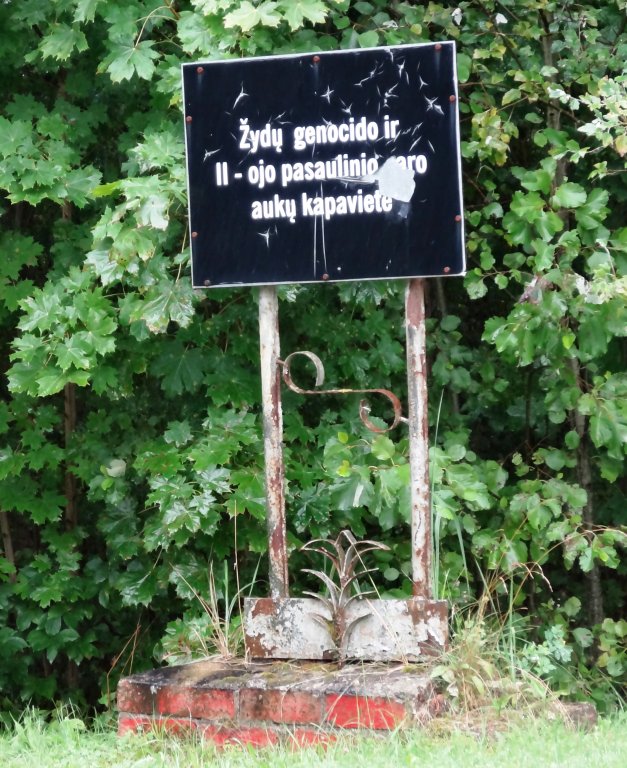 Žydų genocido ir
II - ojo pasaulinio karo
aukų kapavietė